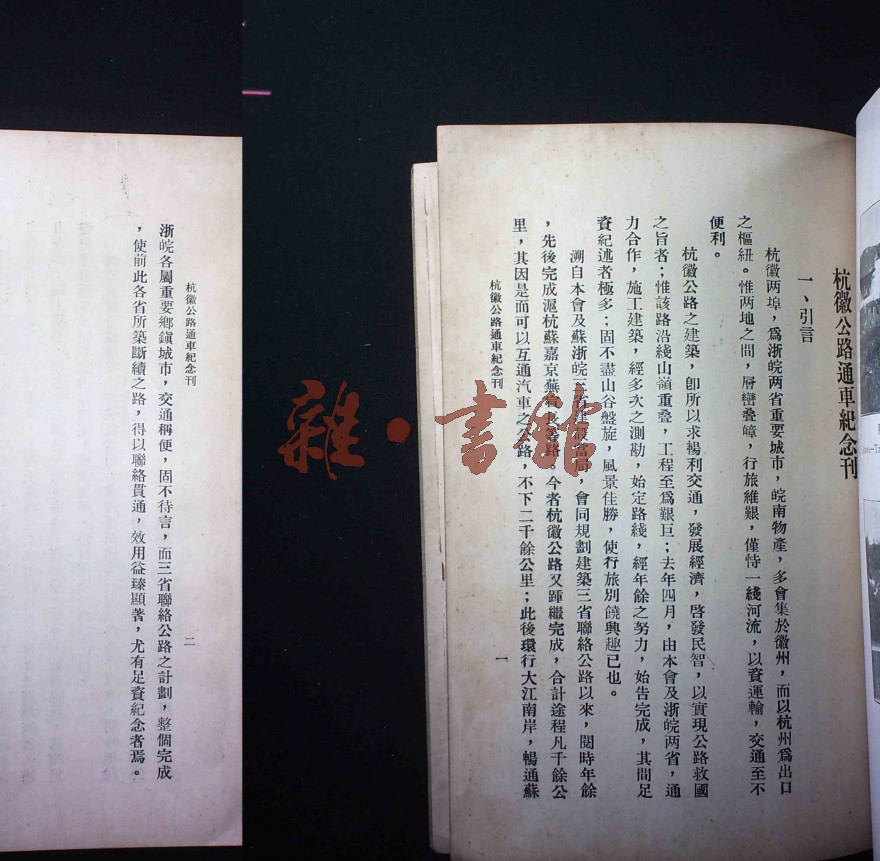 杭徽公路通車紀念刊
一、引言
杭徽两埠，爲浙皖两省重要城市，皖南物產，多會集於徽州，而以杭州爲出口
之樞紐。惟两地之間，層巒叠嶂，行旅維艱，僅恃一綫河流，以資運輸，交通至不
便利。
杭徽公路之建築，卽所以求暢利交通，發展經濟，啓發民智，以實現公路救國
之旨者；惟該路沿綫山嶺重叠，工程至爲艱巨；去年四月，由本會及浙皖两省，通
力合作，施工建築，經多次之測勘，始定路綫，經年餘之努力，始告完成，其間足
資紀述者極多；固不盡山谷盤旋，風景佳勝，使行旅別饒興趣已也。
溯自本會及蘇浙皖三省建設當局，會同規劃建築三省聯絡公路以來，閱時年餘
，先後完成滬杭蘇嘉京蕪宣長等路。今者杭徽公路又踵繼完成，合計途程凡千餘公
里，其因是而可以互通汽車之公路，不下二千餘公里；此後環行大江南岸，暢通蘇
杭徽公路通車紀念刊
一
杭徽公路通車紀念刊
二
浙皖各屬重要鄉鎭城市，交通稱便，固不待言，而三省聯絡公路之計劃，整個完成
，使前此各省所築斷續之路，得以聯絡貫通，效用益臻顯著，尤有足資紀念者焉。
雜·書館